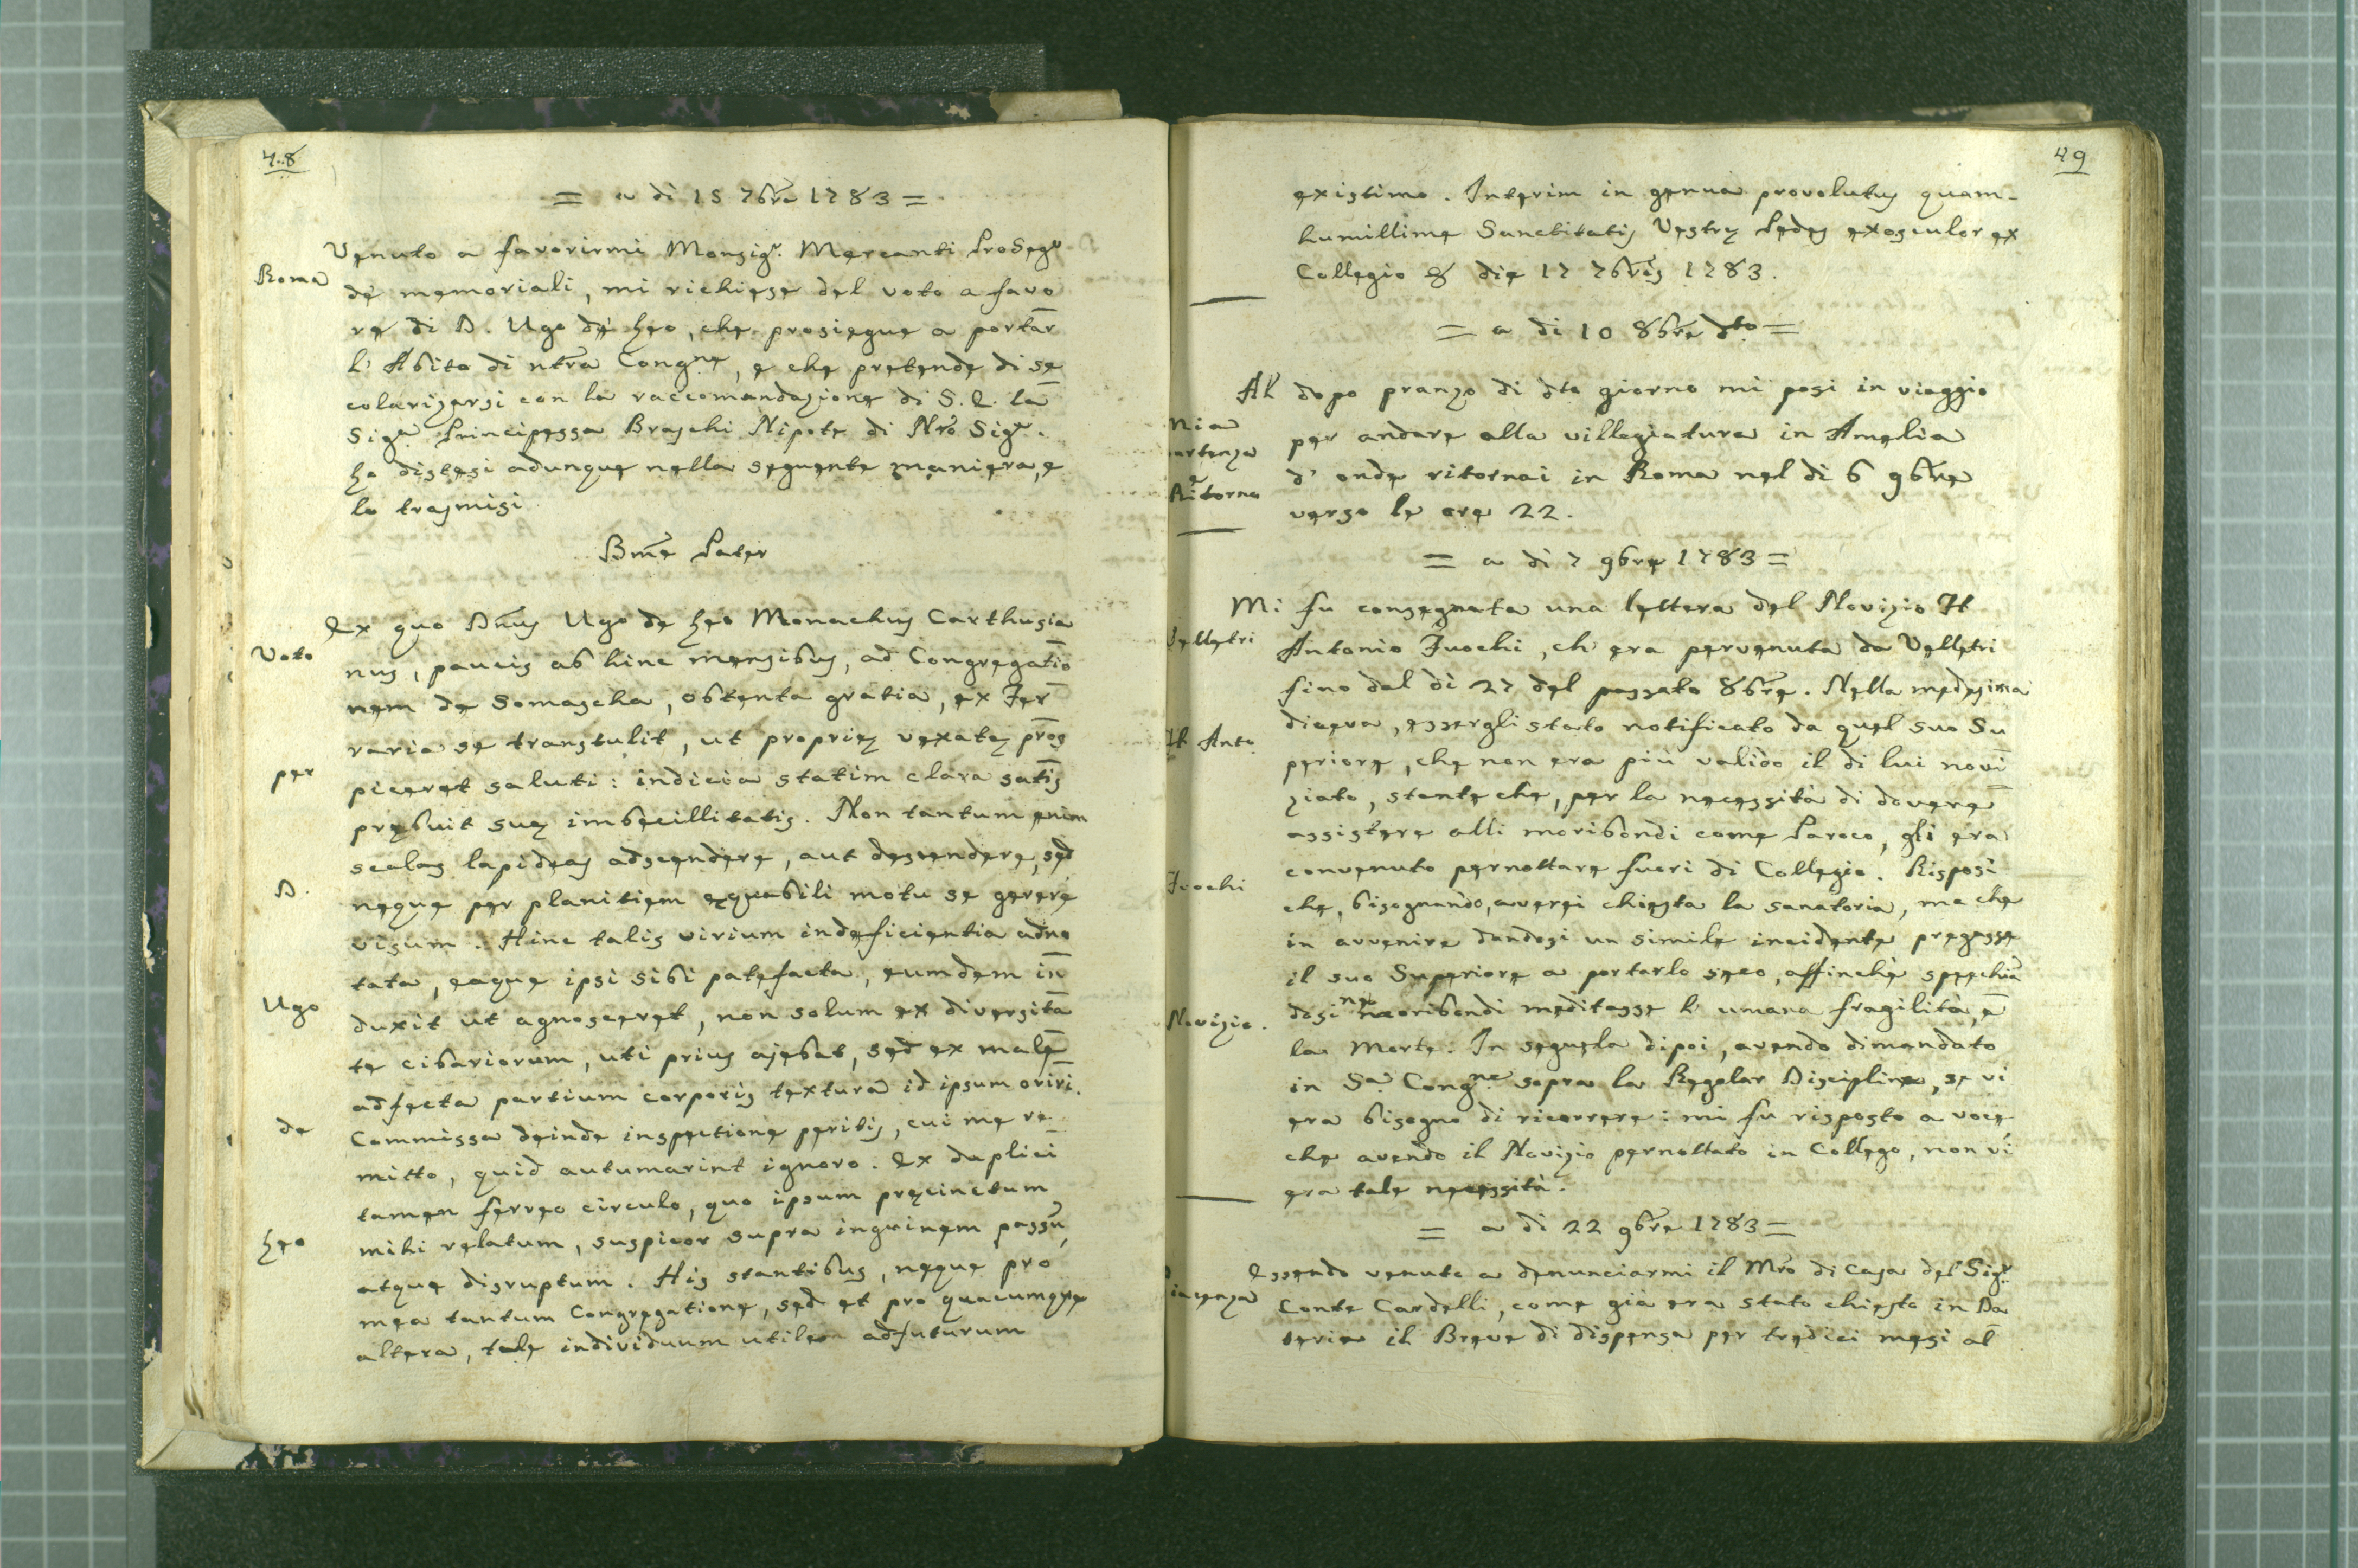 48
= a di 15 7bre 1783 =
Roma
Venuto a favorirmi Monsigr. Mercanti ProSegr
de' memoriali, mi richiese del voto a favo
re di D. Ugo de heo, che prosiegue a portar
l' Abito di ntra Congne, e che pretende di se
colarizarsi con la raccomandazione di S. E. la
Siga Principessa Braschi Nipote di Nro Sigr.
ho distesi adunque nella seguente maniera, e
lo trasmisi
Bme Pater
Voto
per
D.
Ugo
de
heo
Ex quo Dnus Ugo de heo Monachus Carthusia
nus, paucis ab hinc mensibus, ad Congregatio
nem de Somascha, obtenta gratia, ex Fer
raria se transtulit, ut proprię vexatę pros
piceret saluti: indicia statim clara satis
prębuit suę imbecillitatis. Non tantum enim
scalas lapideas adscendere, aut descendere, sed
neque per planitiem ęquabili motu se gerere
visum. Hinc talis virium indeficientia adno
tata, eaque ipsi sibi patefacta, eumdem in
duxit ut agnosceret, non solum ex diversita
te cibariorum, uti prius ajebat, sed ex male
adfecta partium corporis textura id ipsum oriri.
Commissa deinde inspectione peritis, cui me re
mitto, quid autumarint ignoro. Ex duplici
tamen ferreo circulo, quo ipsum pręcinctum
mihi relatum, suspicor supra inguinem passu,
atque disruptum. His stantibus, neque pro
mea tantum Congregatione, sed et pro quacumque
altera, tale individuum utile adfuturum
49
existimo. Interim in genua provolutus quam-
humillime Sanctitatis Vestrę Pedes exosculor ex
Collegio & die 17 7bris 1783.
= a di 10 8bre dto =
Mia
artenza
e
Ritorno
Al dopo pranzo di dto giorno mi posi in viaggio
per andare alla villegiatura in Amelia
d' onde ritornai in Roma nel di 6 9bre
verso le ore 22.
= a di 7 9bre 1783 =
Velletri
Il Anto
Fuochi
Novizio.
Mi fu consegnata una lettera del Novizio Il
Antonio Fuochi, ch' era pervenuta da Velletri
fino dal di 27 del passato 8bre. Nella medesima
diceva, essergli stato notificato da quel suo Su
periore, che non era più valido il di lui novi
ziato, stante che, per la necessità di dovere
assistere alli moribondi come Paroco, gli era
convenuto pernottare fuori di Collegio. Risposi
che, bisognando, aversi chiesta la sanatoria, ma che
in avvenire dandosi un simile incidente pregasse
il suo Superiore a portarlo seco, affinchè specchian
dosi ne' moribondi meditasse l' umana fragilità, e
la Morte. In seguela dipoi, avendo dimandato
in Sa. Congne sopra la Regolar Disciplina, se vi
era bisogno di ricorrere: mi fu risposto a voce
che avendo il Novizio pernottato in Collego, non vi
era tale necessità.
= a di 22 9bre 1783 =
iacenza
Essendo venuto a denunciarmi il Mro di Casa del Sigr
Conte Cardelli, come già era stato chiesto in Da
teria il Breve di dispensa per tredici mesi al